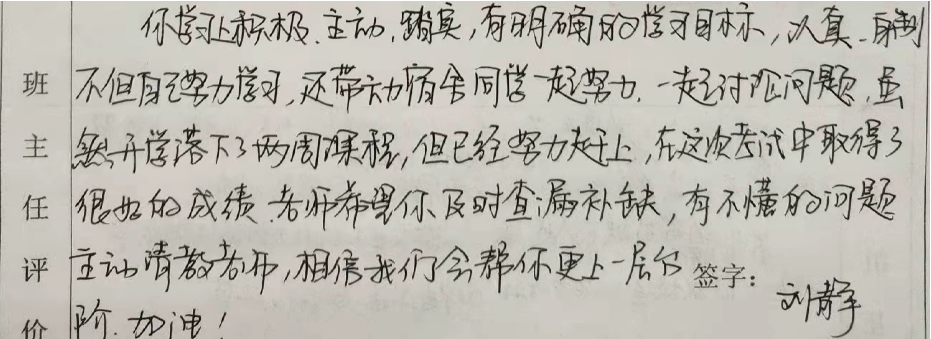 你学习上积极、主动、踏实,有明确的学习目标,认真、自制
不但自己努力学习,还带动宿舍同学一起努力、一起讨论问题,虽
然开学落下了两周课程,但已经努力赶上,在这次考试中取得了
很好的成绩,老师希望你及时查漏补缺,有不懂的问题
主动请教老师,相信我们会帮你更上一层台
阶.加油!
签字:
刘静
班主任评价